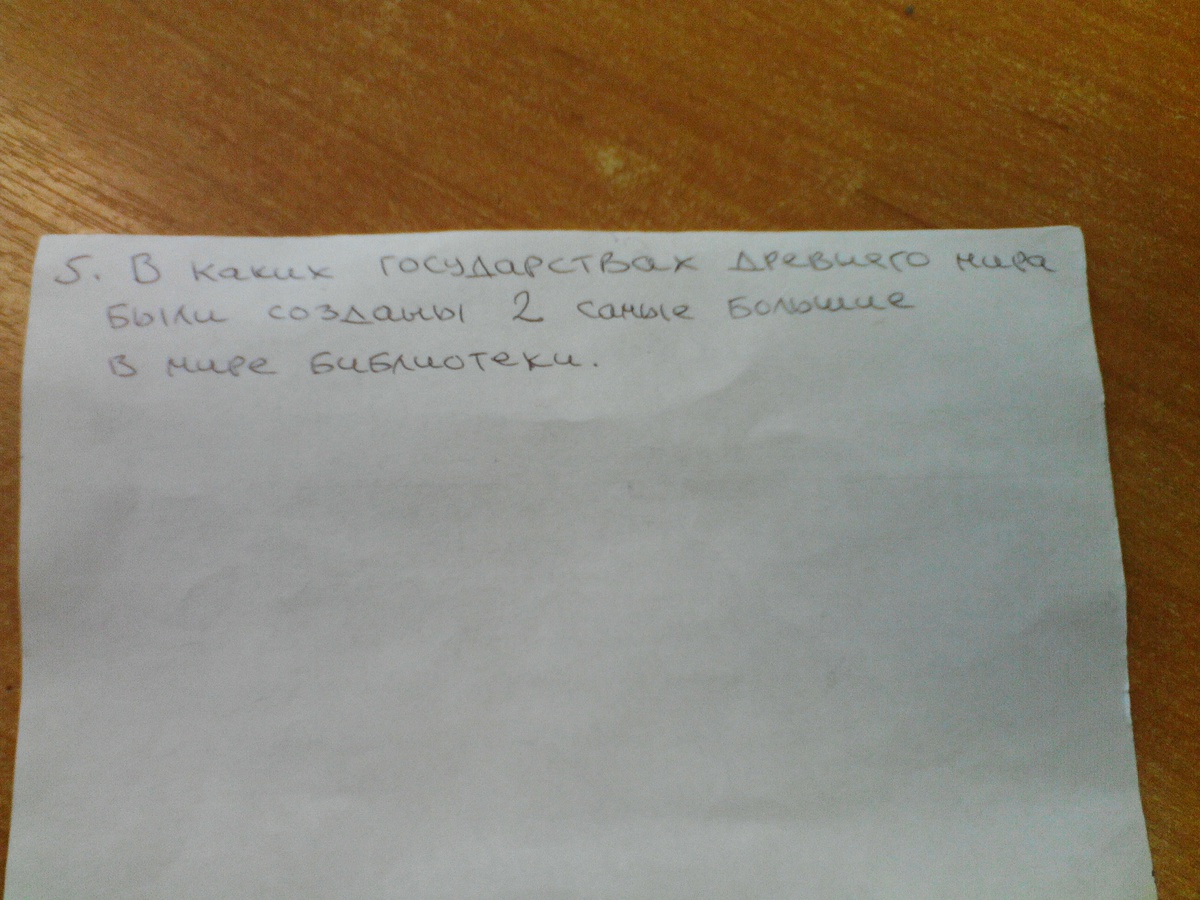 5. В каких государствах древнего мира
были созданы 2 самые большие
в мире библиотеки.